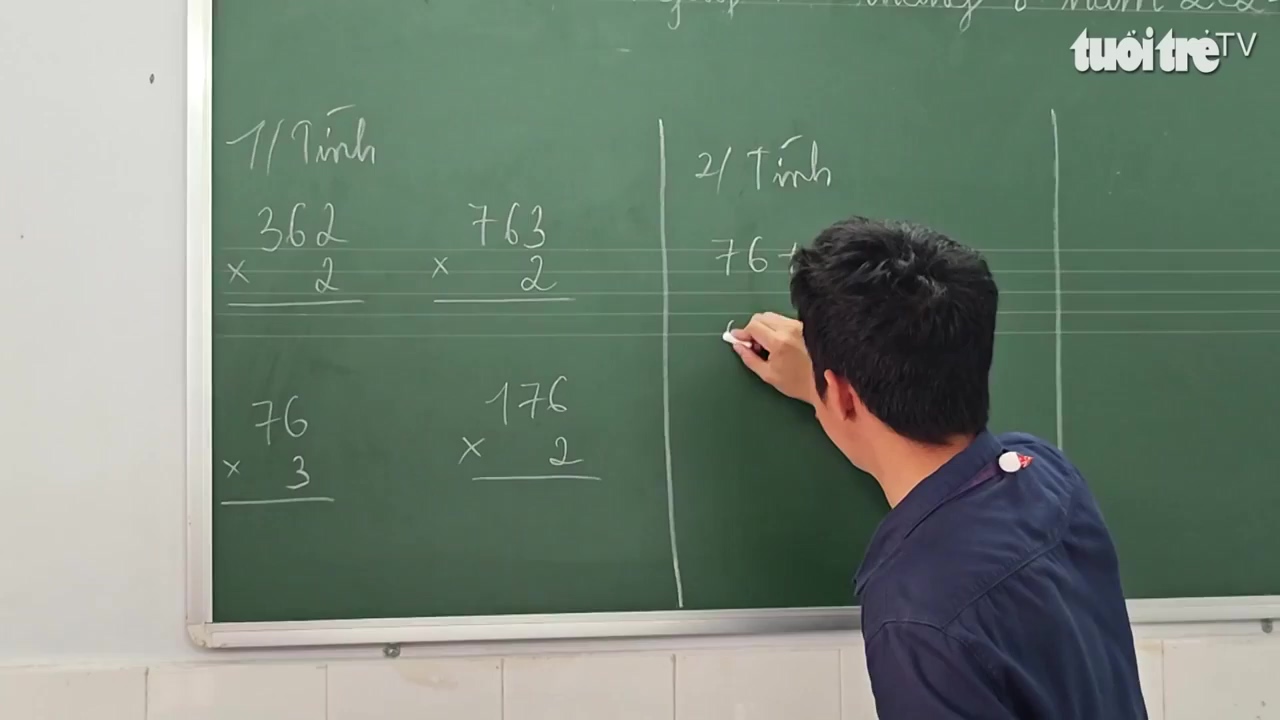 tháng 6 năm 202
tuổi trẻ TV
1/ Tính
362
x 2
763
x 2
76
x 3
176
x 2
2/ Tính
76 +